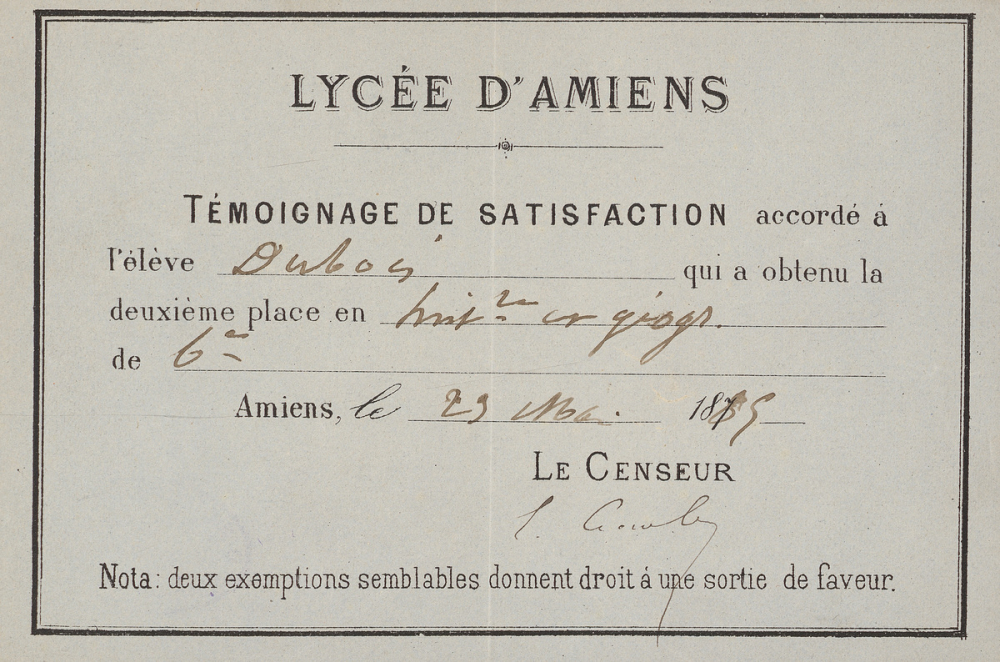 LYCÉE D'AMIENS
TÉMOIGNAGE DE SATISFACTION accordé á
l'élève Dubois qui a obtenu la
deuxième place en hist.re et géogr.
de 6e
Amiens, le 23 Mai 1885
LE CENSEUR
Nota: deux exemptions semblables donnent droit á une sortie de faveur.